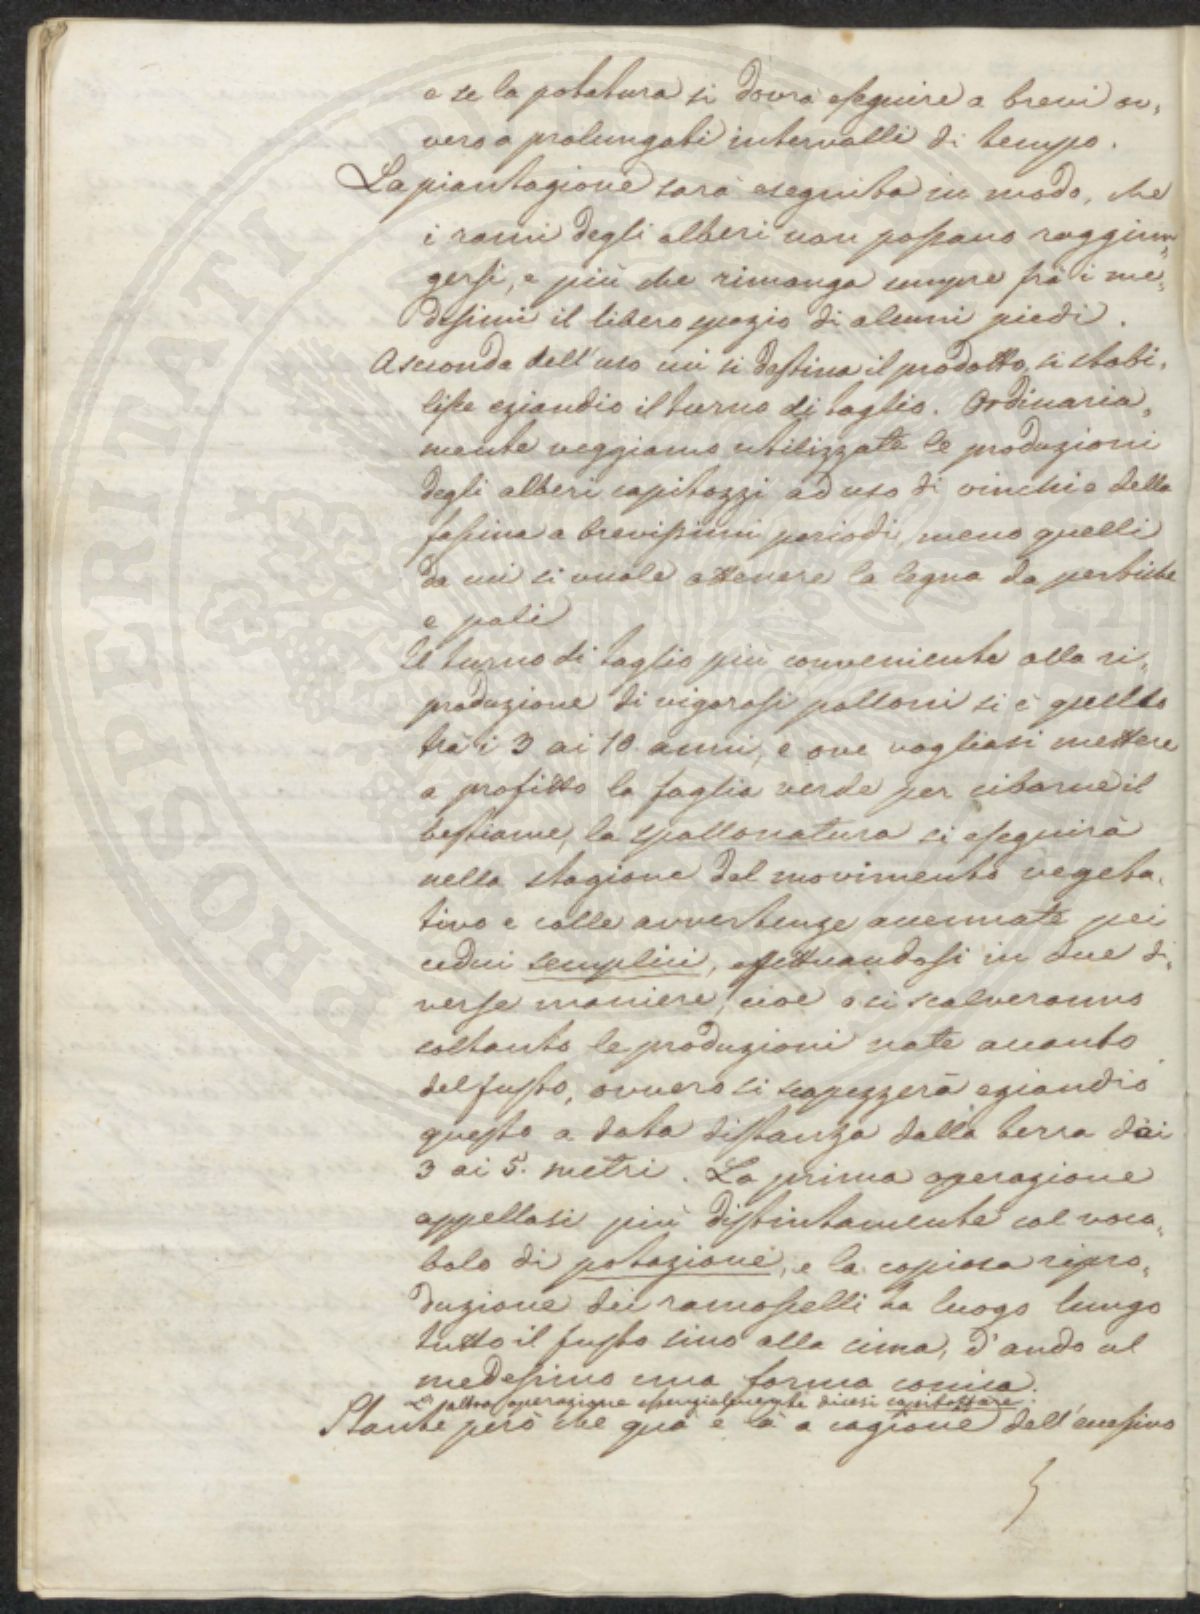 e se la potatura si dovrà eseguire a brevi ov,
vero a prolungati intervalli di tempo.
La piantagione sarà eseguita in modo, che
i rami degli alberi non possano raggiun,
gersi, e più che rimanga sempre frà i me,
desimi il libero spazio di alcuni piedi.
A seconda dell'uso cui si destina il prodotto, si stabi,
lisce eziandio il turno di taglio. Ordinaria,
mente veggiamo utilizzate le produzioni
degli alberi capitozzi ad uso di vinchi e della
fassina a brevissimi periodi, meno quelli
da cui si vuole ottenere la legna da pertiche
e pali
Il turno di taglio più conveniente alla ri,
produzione di vigorosi polloni si è quello
trà i 3 ai 10 anni, e ove vogliasi mettere
a profitto la foglia verde per cibarne il
bestiame, la spollonatura si eseguirà
nella stagione del movimento vegeta,
tivo e colle avvertenze accennate pei
cedui semplici, effettuandosi in due di,
verse maniere, cioè o si scalveranno
soltanto le produzioni nate accanto
del fusto, ovvero si scapezzerà eziandio
questo a data distanza dalla terra dai
3 ai 5. metri. La prima operazione
appellasi più distintamente col voca,
bolo di potazione, e la copiosa ripro,
duzione dei ramoscelli ha luogo lungo
tutto il fusto sino alla cima, d'ando al
medesimo una forma conica.
L'altra operazione essenzialmente dicesi capitozzare.
Stante però che quà e là a cagione dell'eccessivo
PROSPERITATI PUBLICAE